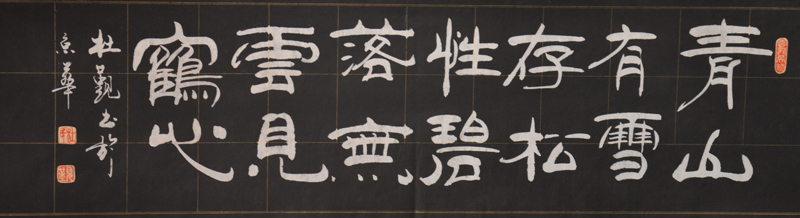 青山
有雪
存松
性碧
落無
雲見
鶴心
杜觀書於
京華